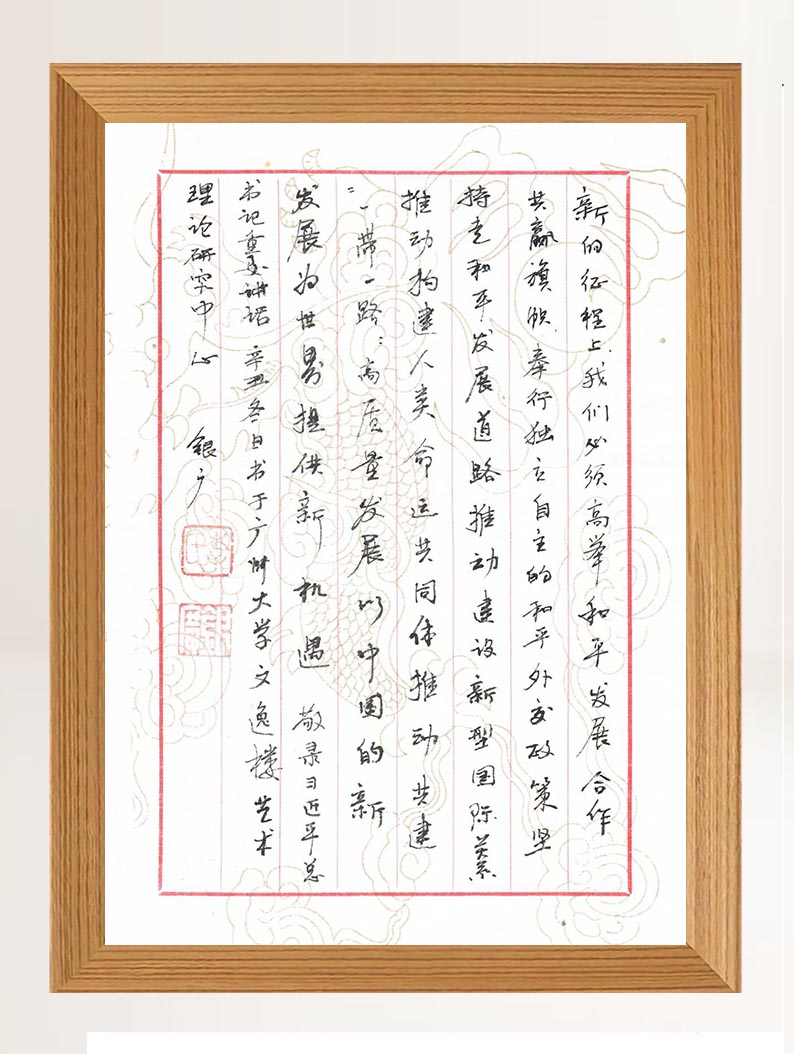 新的征程上,我们必须高举和平发展合作
共赢旗帜,奉行独立自主的和平外交政策坚
持走和平发展道路推动建设新型国际关系
推动构建人类命运共同体推动共建
“一带一路”高质量发展以中国的新
发展为世界提供新机遇 敬录习近平总
书记重要讲话 辛丑冬日书于广州大学文逸楼艺术
理论研究中心 银广